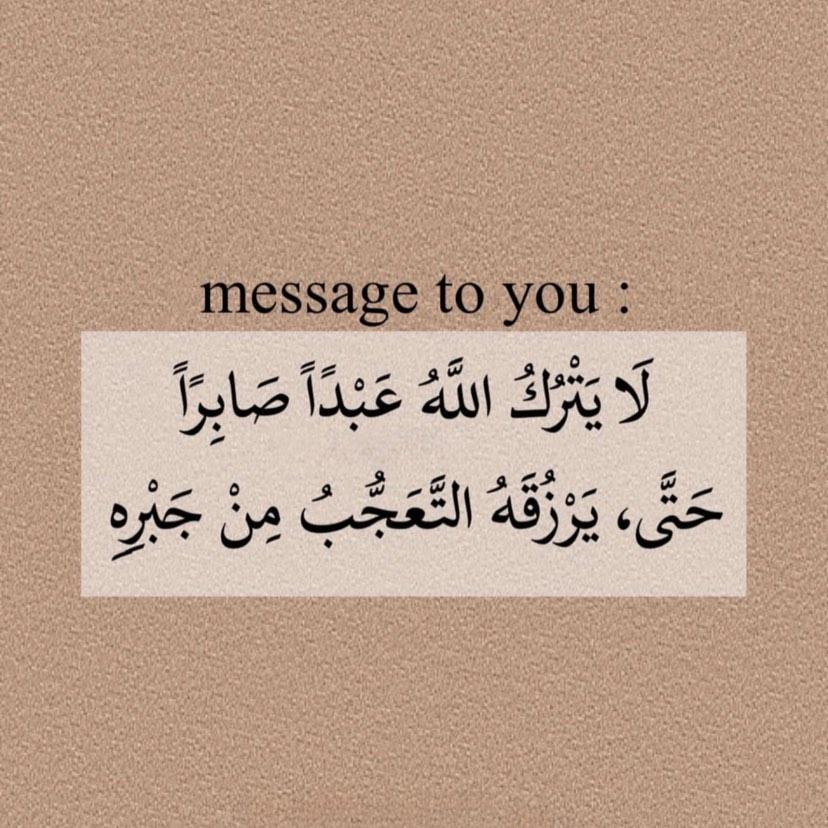 message to you :
لَا يَتْرُكُ اللَّهُ عَبْدًاً صَابِرًاً
حَتَّى، يَرْزُقَهُ التَّعَجُّبُ مِنْ جَبْرِهِ